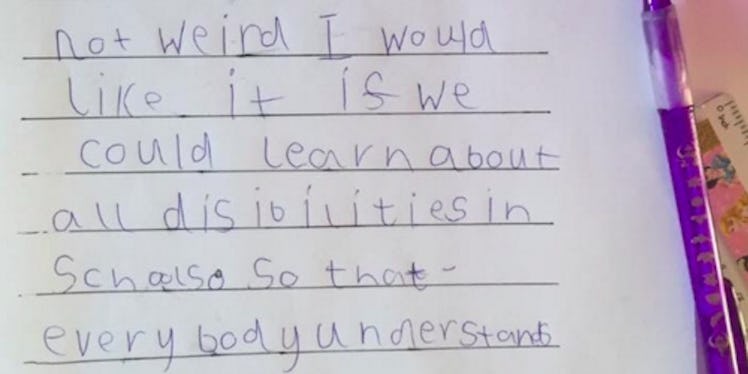 not weird I would
like it if we
could learn about
all disibilities in
so that -
everybody understands